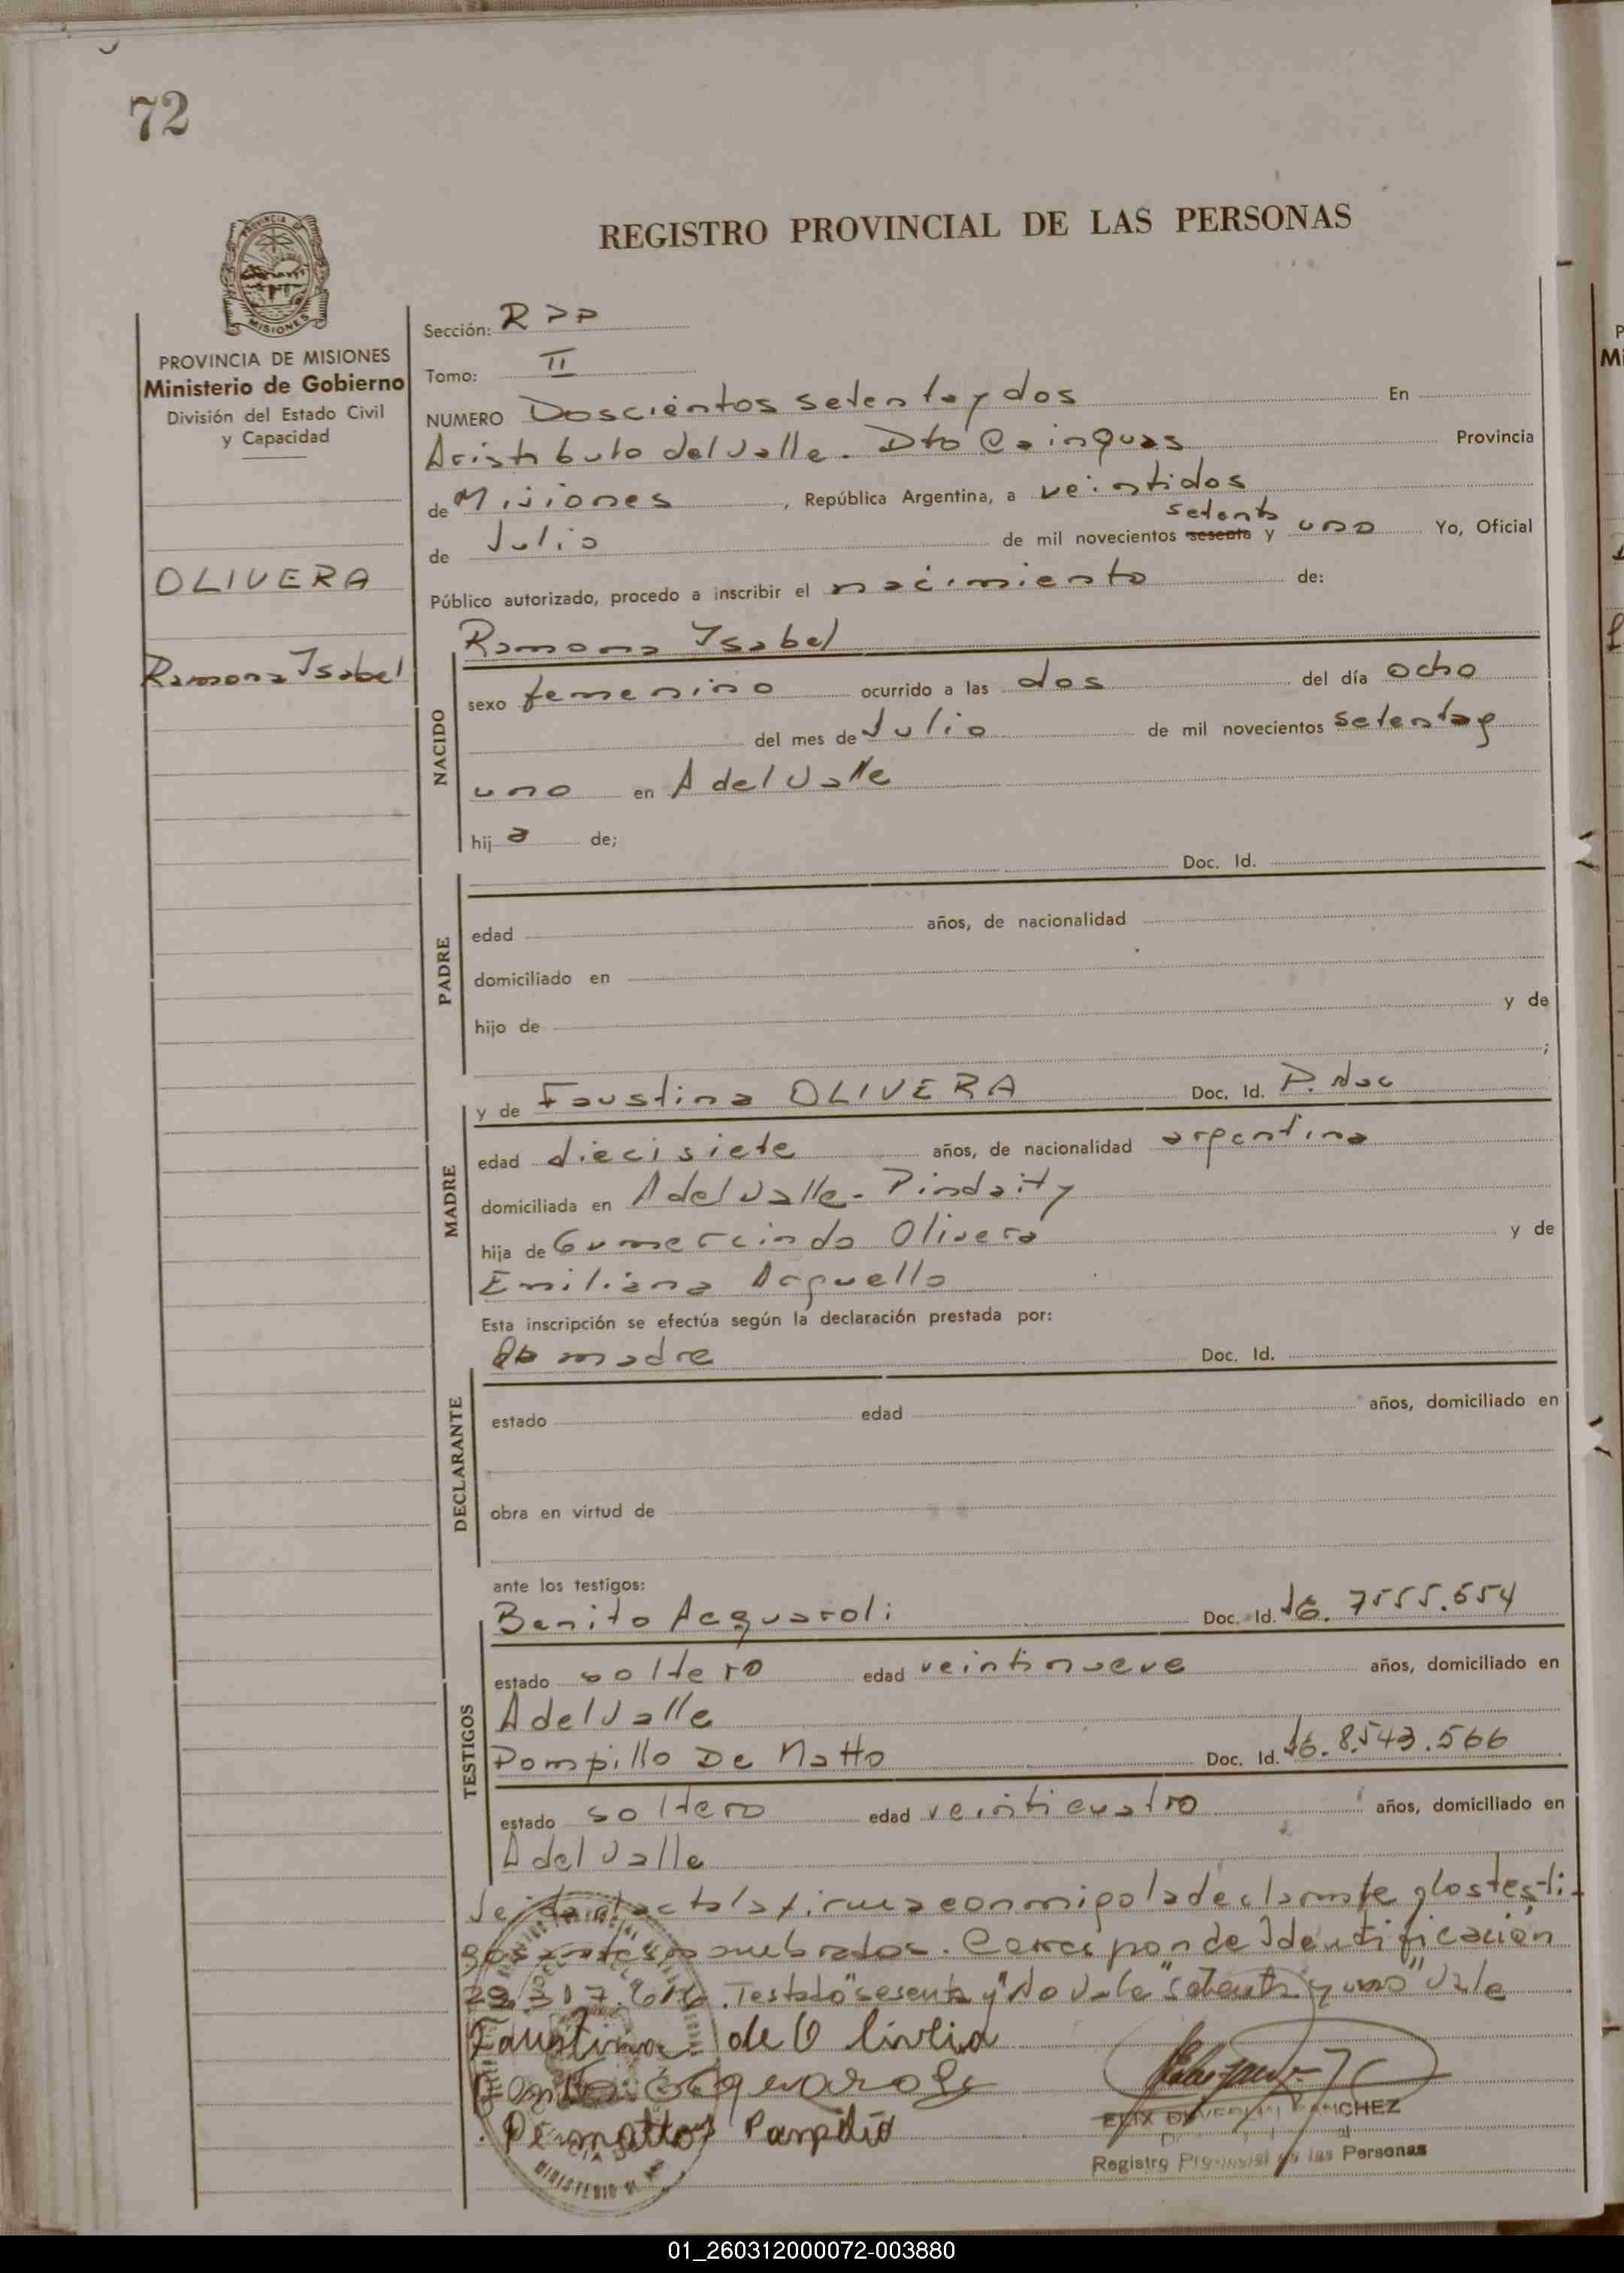 72
REGISTRO PROVINCIAL DE LAS PERSONAS
PROVINCIA
MISIONES
PROVINCIA DE MISIONES
Ministerio de Gobierno
División del Estado Civil
y Capacidad
OLIVERA
Ramona Isabel
Sección: R P P
Tomo: II
NUMERO Doscientos setenta y dos En
Aristobulo del Valle. Dto Cainguas Provincia
de Misiones, República Argentina, a veintidos
setenta
de Julio de mil novecientos sesenta y uno Yo, Oficial
Público autorizado, procedo a inscribir el nacimiento de:
Ramona Isabel
NACIDO
sexo femenino ocurrido a las dos del día ocho
del mes de Julio de mil novecientos setenta y
uno en A del Valle
hija de;
Doc. Id.
PADRE
edad años, de nacionalidad
domiciliado en
hijo de y de
;
MADRE
y de Faustina OLIVERA Doc. Id. P. Nac
edad diecisiete años, de nacionalidad argentina
domiciliada en A del Valle - Pindaity
hija de Gumercindo Olivera y de
Emiliana Arguello
Esta inscripción se efectúa según la declaración prestada por:
DECLARANTE
la madre Doc. Id.
estado edad años, domiciliado en
obra en virtud de
ante los testigos:
TESTIGOS
Benito Acquaroli Doc. Id. 7555.654
estado soltero edad veintinueve años, domiciliado en
A del Valle
Pompillo De Matto Doc. Id. 8.543.566
estado soltero edad veinticuatro años, domiciliado en
A del Valle
Leida el acta la firma conmigo la declarante y los testi-
gos antes nombrados. Corresponde Identificación
Testado "sesenta y" No Vale "setenta y uno" Vale
Faustina de O livlia
Acquaroli
De mattos Pampilio
SANCHEZ
Registro Provincial de las Personas
MINISTERIO
01_260312000072-003880